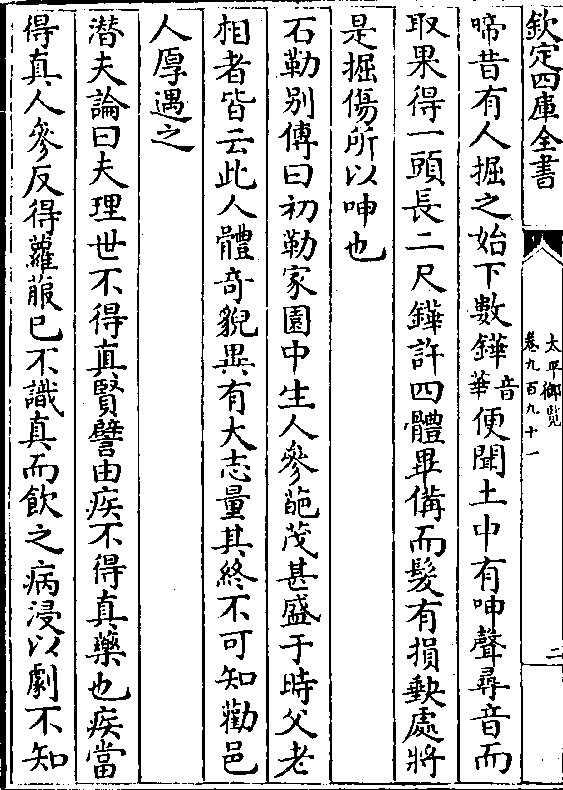 欽定四庫全書
太平御覧
卷九百九十一
二
啼昔有人掘之始下數鏵音華便聞土中有呻聲尋音而
取果得一頭長二尺鏵許四體畢備而髮有損缺處將
是掘傷所以呻也
石勒别傳曰初勒家園中生人參葩茂甚盛于時父老
相者皆云此人體奇貌異有大志量其終不可知勸邑
人厚遇之
潜夫論曰夫理世不得真賢譬由疾不得真藥也疾當
得真人參反得蘿菔已不識真而飲之病浸以劇不知